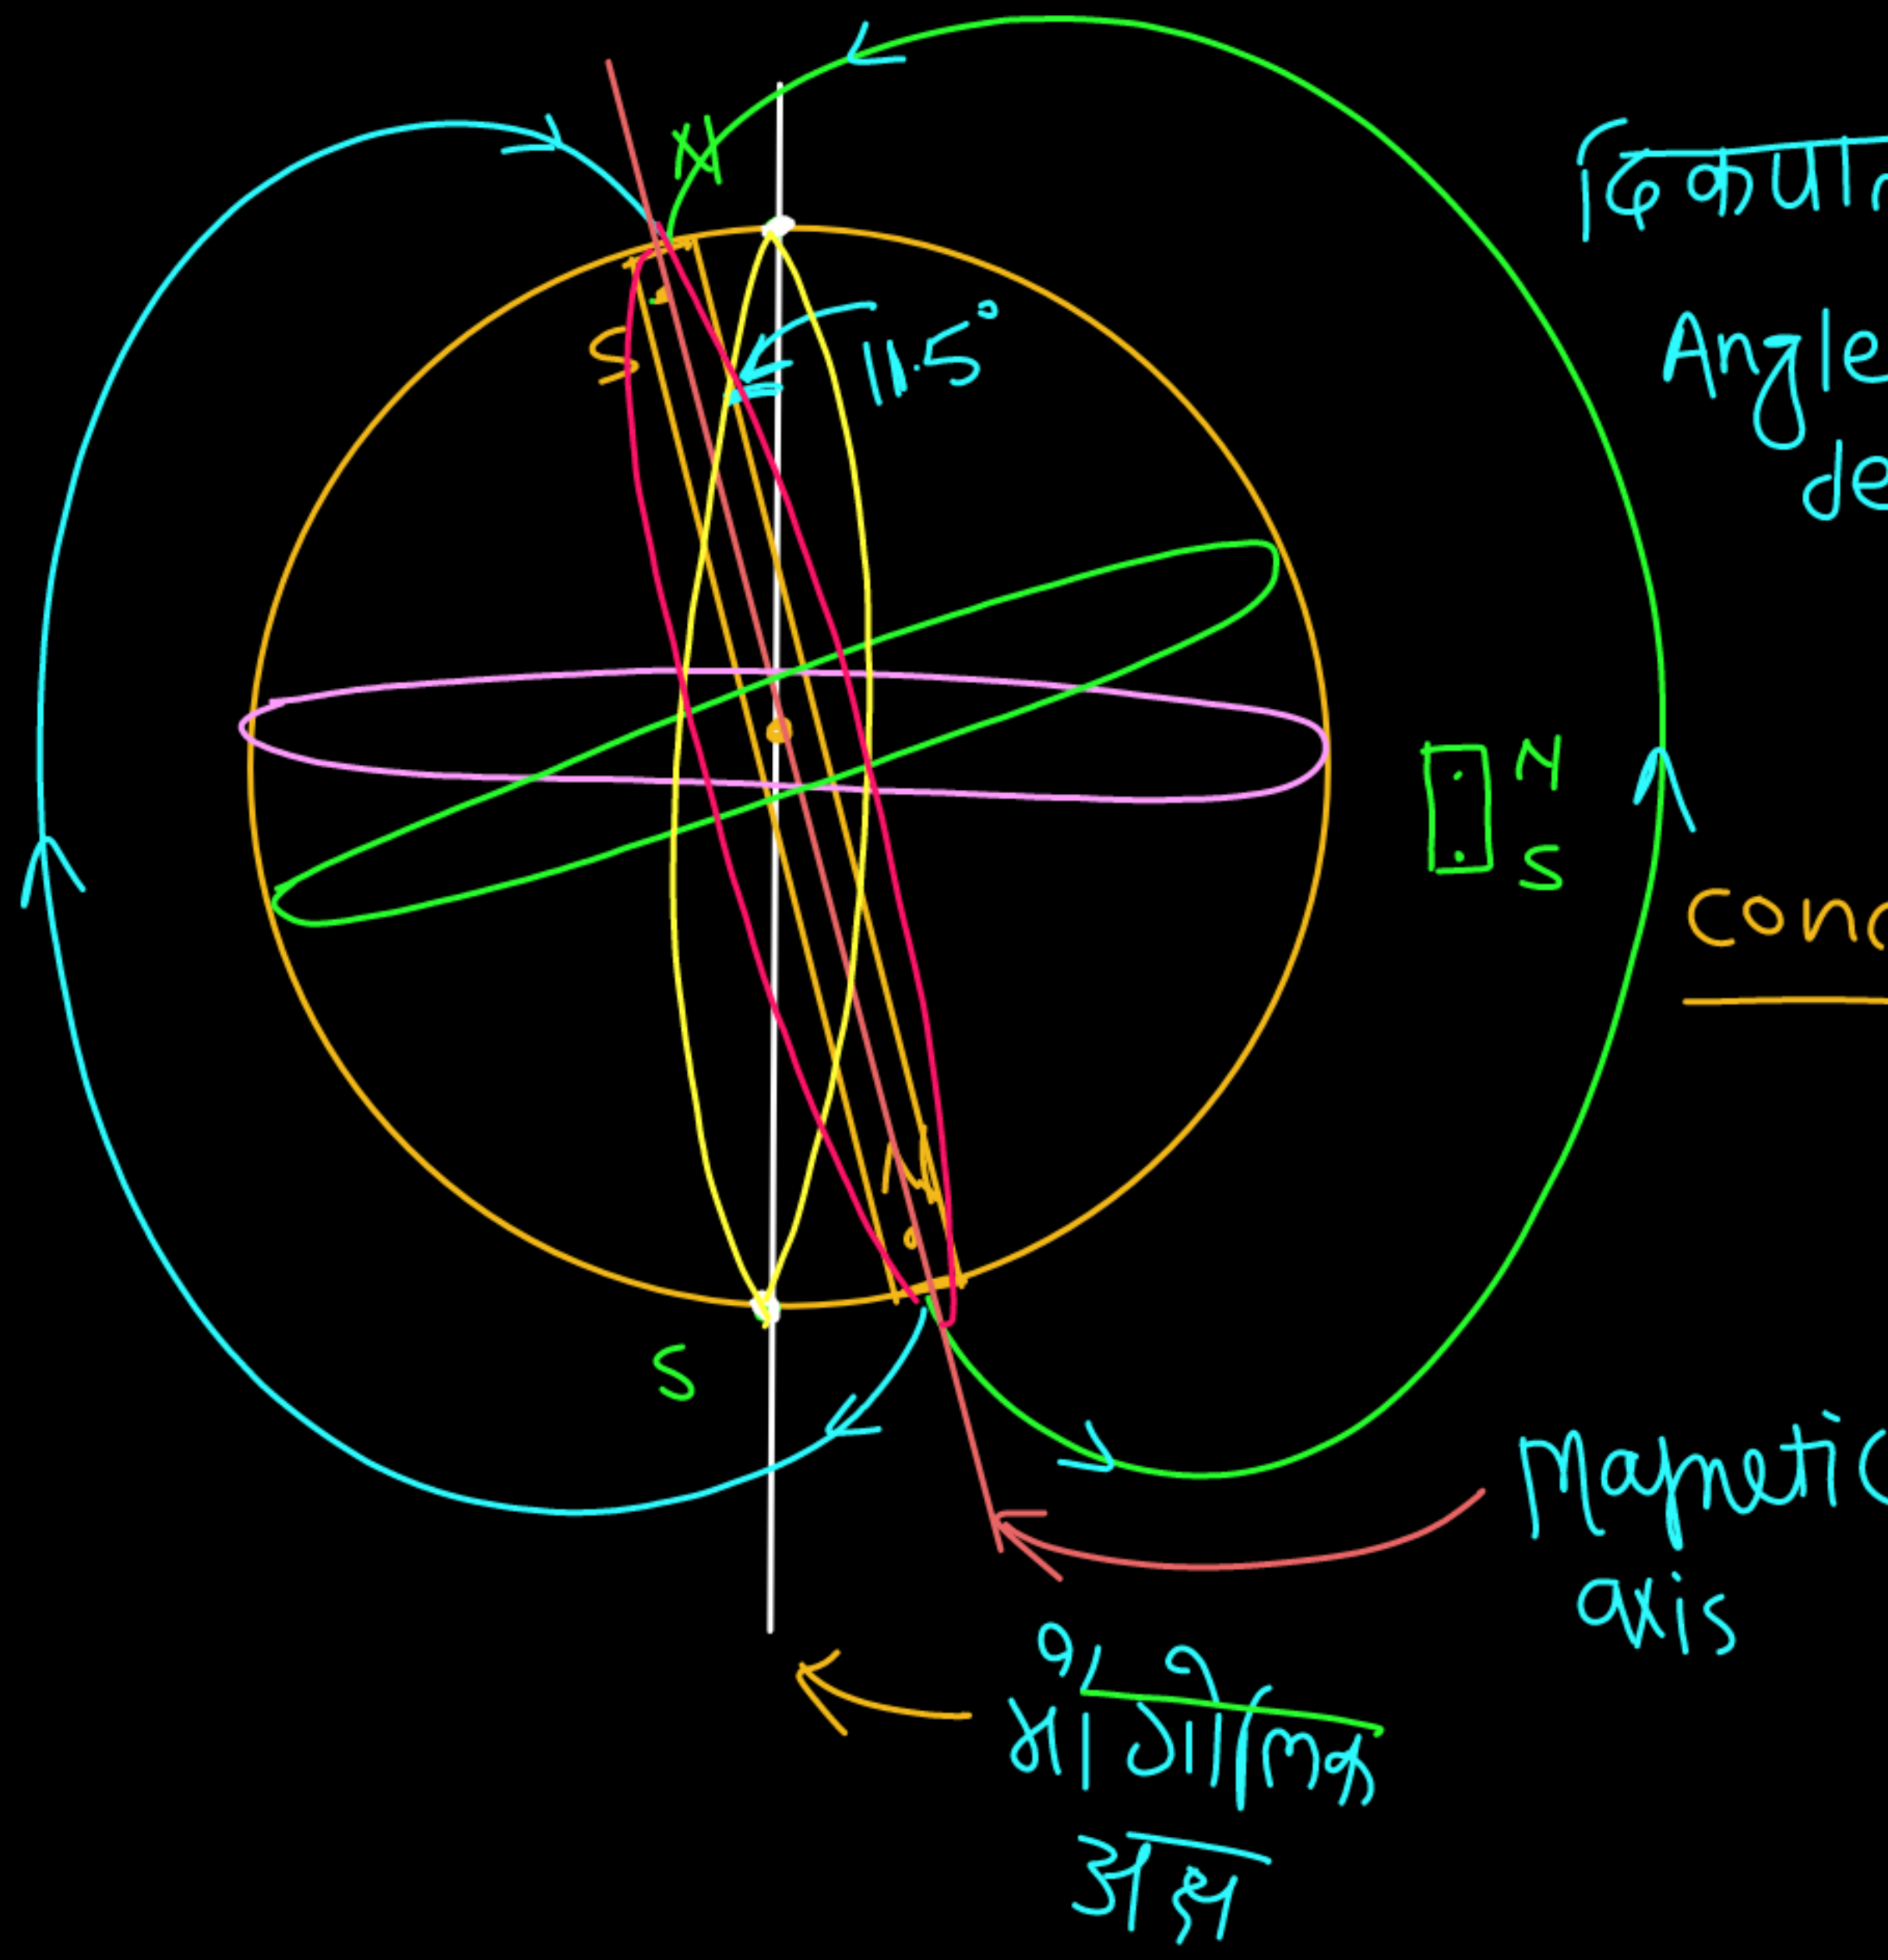 N
दिकपा
S
11.5°
Angle
de
N
S
conc
N
S
Magnetic
axis
भौगोलिक
अक्ष